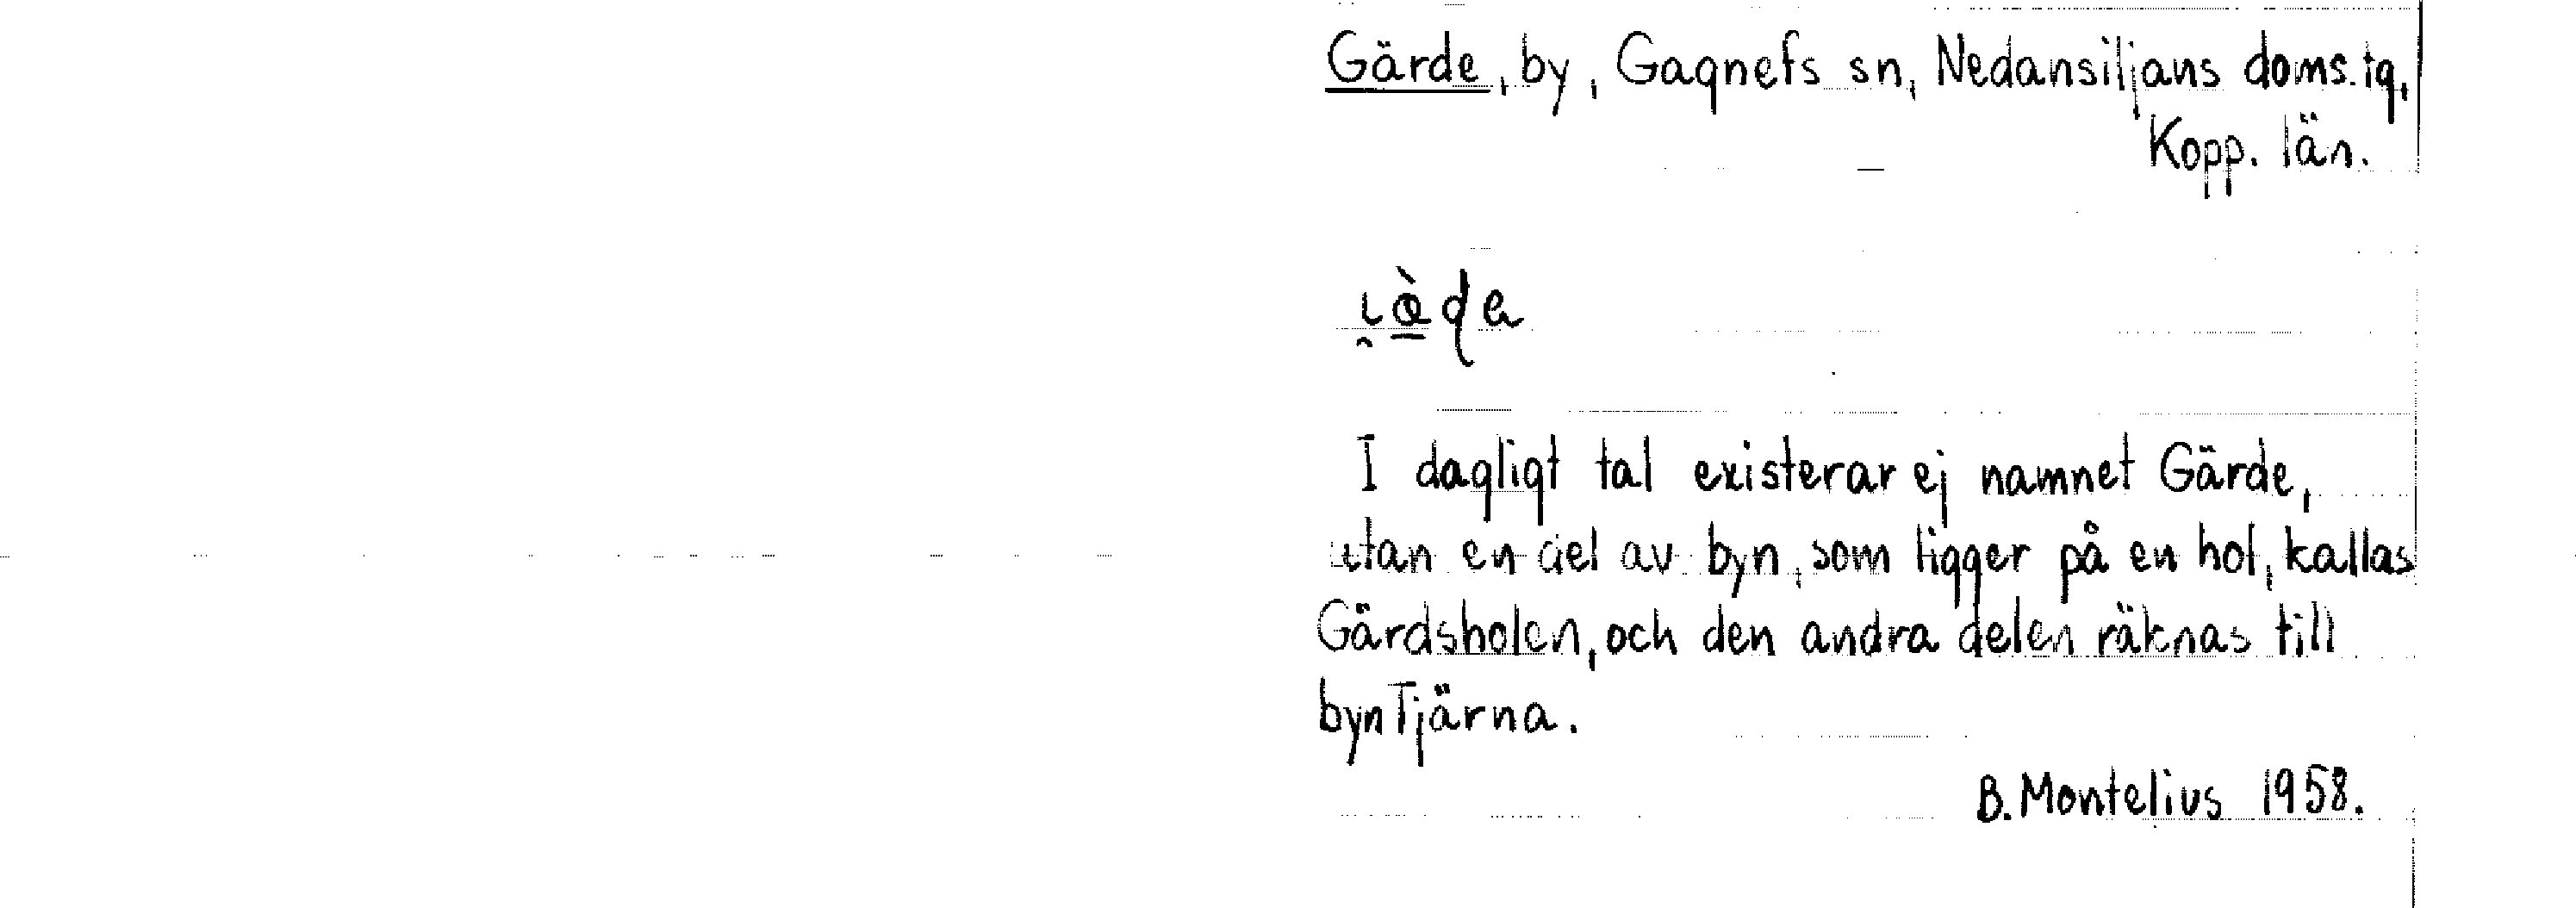 Gärde, by, Gagnefs sn, Nedansiljans doms. tg,
Kopp. län.
I dagligt tal existerar ej namnet Gärde,
utan en del av byn, som ligger på en hol, kallas
Gärdsholen, och den andra delen räknas till
byn Tjärna.
B. Montelius 1958.